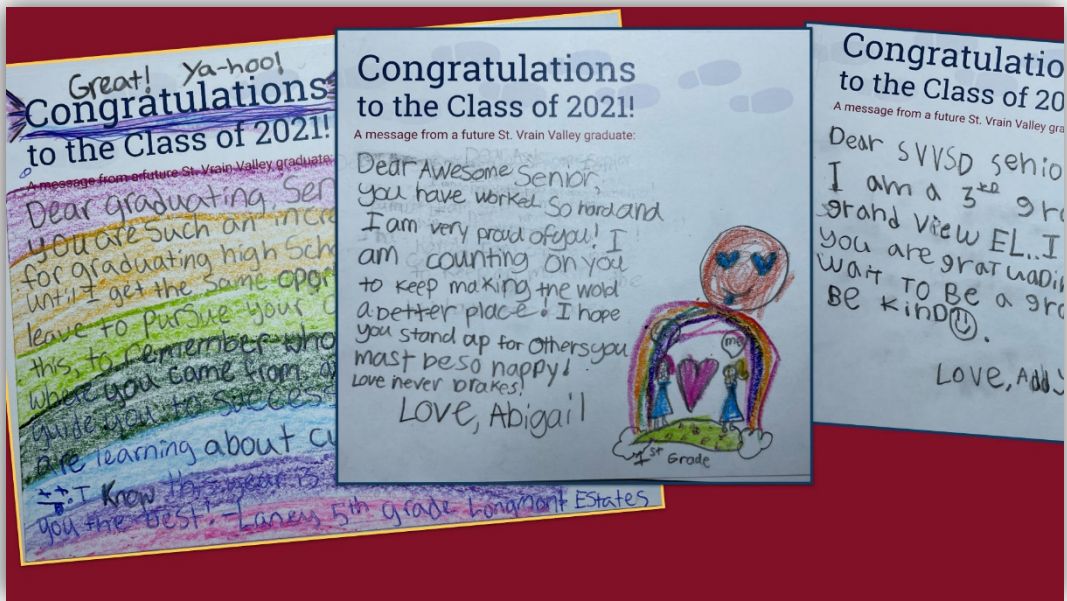 Great! Ya-hoo!
Congratulations
to the Class of 2021!
A message from a future St. Vrain Valley graduate
Dear graduating, Sen
you are such an incre
for graduating high Sch
until I get the same oppor
leave to pursue your
this, to remember who
where you came from, a
guide you to success
are learning about cu
I Know this year is
you the best! -Laney 5th grade Longmont Estates
Congratulations
to the Class of 2021!
A message from a future St. Vrain Valley graduate:
Dear Awesome Senior,
you have worked so hard and
I am very proud of you! I
am counting on you
to keep making the wold
a better place! I hope
you stand up for others you
mast be so happy!
Love never brakes!
Love, Abigail
me
1st Grade
Congratulatio
to the Class of 20
A message from a future St. Vrain Valley gra
Dear SVVSD senio
I am a 3rd gr
grand view EL.. I
you are gratuadin
wait To Be a gra
BE KinD
Love, Addy